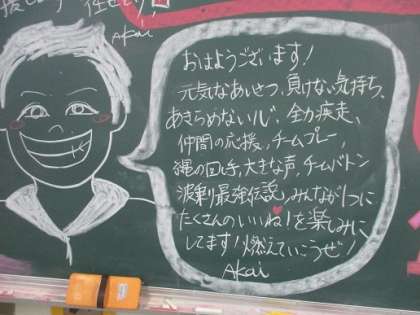 任せとけ
Akai
おはようございます!
元気なあいさつ、負けない気持ち、
あきらめない心、全力疾走、
仲間の応援、チームプレー、
縄の回し手、大きな声、チームバトン
波剰最強伝説、みんなが1つに
たくさんのいいね!を楽しみに
してます!燃えていこうぜ!
Akai